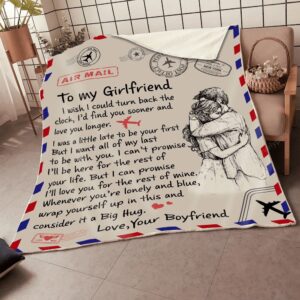 AIR MAIL
To my Girlfriend
I wish I could turn back the
clock, I'd find you sooner and
love you longer.
I was a little late to be your first
But I want all of my last
to be with you. I can't promise
I'll be here for the rest of
your life. But I can promise
I'll love you for the rest of mine.
Whenever you're lonely and blue,
wrap yourself up in this and
consider it a Big Hug.
Love, Your Boyfriend